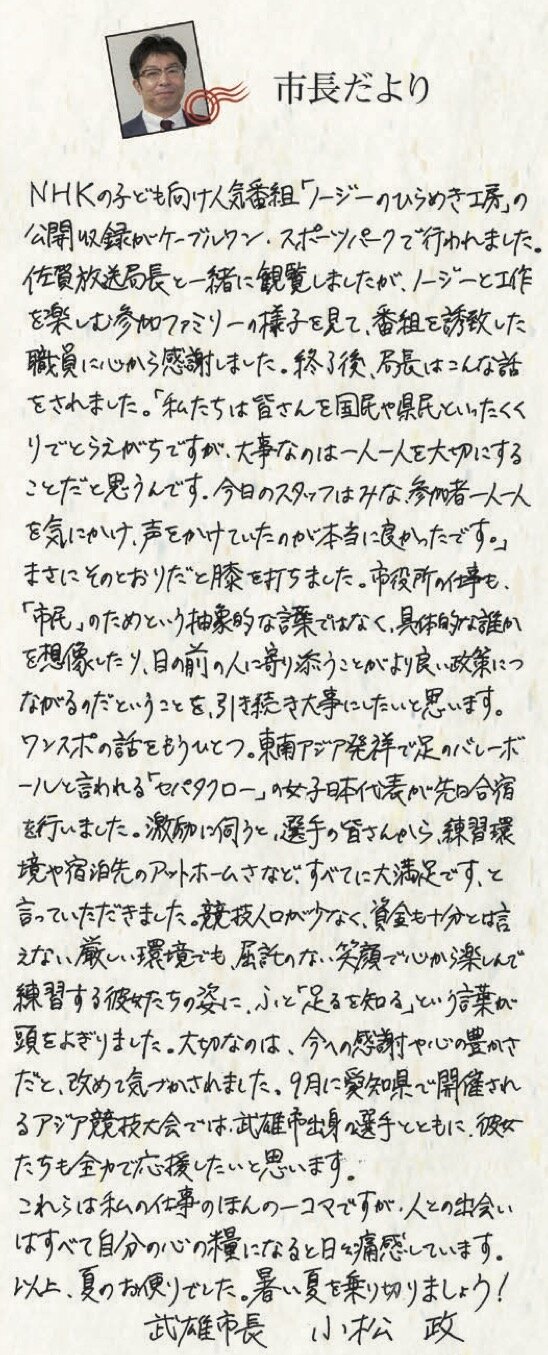 市長だより
NHKの子ども向け人気番組「ノージーのひらめき工房」の
公開収録がケーブルワン・スポーツパークで行われました。
佐賀放送局長と一緒に観覧しましたが、ノージーと工作
を楽しむ参加ファミリーの様子を見て、番組を誘致した
職員に心から感謝しました。終了後、局長はこんな話
をされました。「私たちは皆さんを国民や県民といったくく
りでとらえがちですが、大事なのは一人一人を大切にする
ことだと思うんです。今日のスタッフはみな、参加者一人一人
を気にかけ、声をかけていたのが本当に良かったです。」
まさにそのとおりだと膝を打ちました。市役所の仕事も、
「市民」のためという抽象的な言葉ではなく、具体的な誰か
を想像したり、目の前の人に寄り添うことがより良い政策につ
ながるのだということを、引き続き大事にしたいと思います。
ワンスポの話をもうひとつ。東南アジア発祥で足のバレーボ
ールと言われる「セパタクロー」の女子日本代表が先日合宿
を行いました。激励に伺うと、選手の皆さんから、練習環
境や宿泊先のアットホームさなど、すべてに大満足です、と
言っていただきました。競技人口が少なく、資金も十分とは言
えない、厳しい環境でも、屈託のない笑顔で心から楽しんで
練習する彼女たちの姿に、ふと「足るを知る」という言葉が
頭をよぎりました。大切なのは、今への感謝や心の豊かさ
だと、改めて気づかされました。9月に愛知県で開催され
るアジア競技大会では、武雄市出身の選手とともに、彼女
たちも全力で応援したいと思います。
これらは私の仕事のほんの一コマですが、人との出会い
はすべて自分の心の糧になると日々痛感しています。
以上、夏のお便りでした。暑い夏を乗り切りましょう!
武雄市長 小松 政